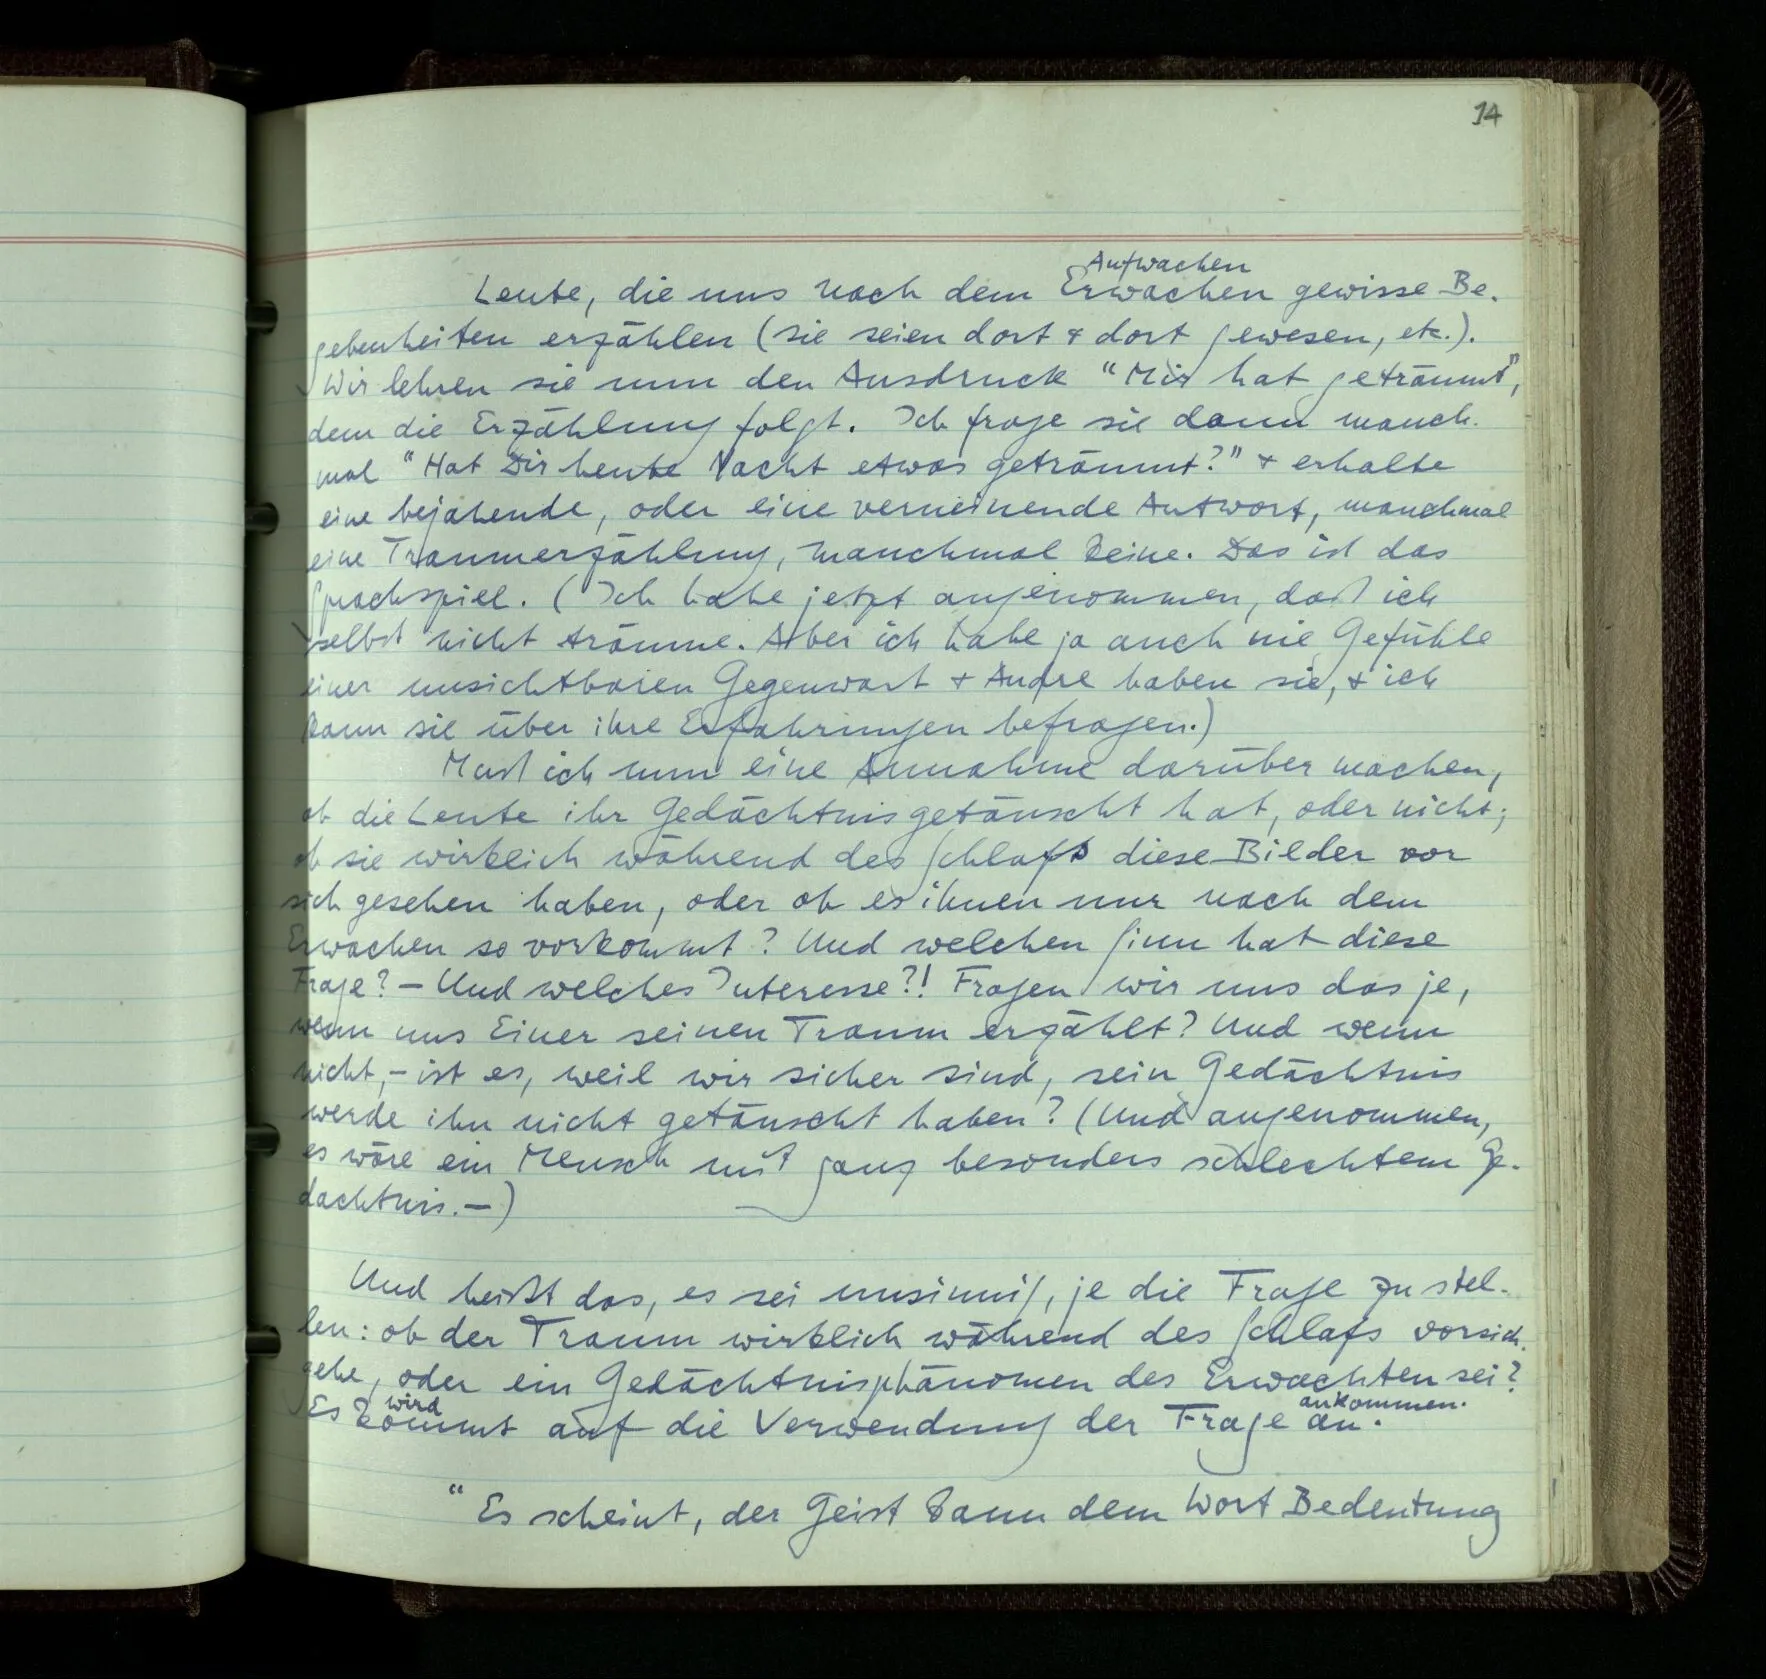 14
Aufwachen
Leute, die uns nach dem Erwachen gewisse Be-
gebenheiten erzählen (sie seien dort & dort gewesen, etc.).
Wir lehren sie nun den Ausdruck "Mir hat geträumt",
dem die Erzählung folgt. Ich frage sie dann manch-
mal "Hat Dir heute Nacht etwas geträumt?" & erhalte
eine bejahende, oder eine verneinende Antwort, manchmal
eine Traumerzählung, manchmal keine. Das ist das
Sprachspiel. (Ich habe jetzt angenommen, daß ich
selbst nicht träume. Aber ich habe ja auch nie Gefühle
einer unsichtbaren Gegenwart & Andre haben sie, & ich
kann sie über ihre Erfahrungen befragen.)
Muß ich nun eine Annahme darüber machen,
ob die Leute ihr Gedächtnis getäuscht hat, oder nicht;
ob sie wirklich während des Schlafs diese Bilder vor
sich gesehen haben, oder ob es ihnen nur nach dem
Erwachen so vorkommt? Und welchen Sinn hat diese
Frage? – Und welches Interesse?! Fragen wir uns das je,
wenn uns Einer seinen Traum erzählt? Und wenn
nicht, – ist es, weil wir sicher sind, sein Gedächtnis
werde ihn nicht getäuscht haben? (Und angenommen,
es wäre ein Mensch mit ganz besonders schlechtem Ge-
dächtnis. –)
Und heißt das, es sei unsinnig, je die Frage zu stel-
len: ob der Traum wirklich während des Schlafs vorsich-
gehe, oder ein Gedächtnisphänomen des Erwachten sei?
wird ankommen.
Es kommt auf die Verwendung der Frage an.
"Es scheint, der Geist kann dem Wort Bedeutung